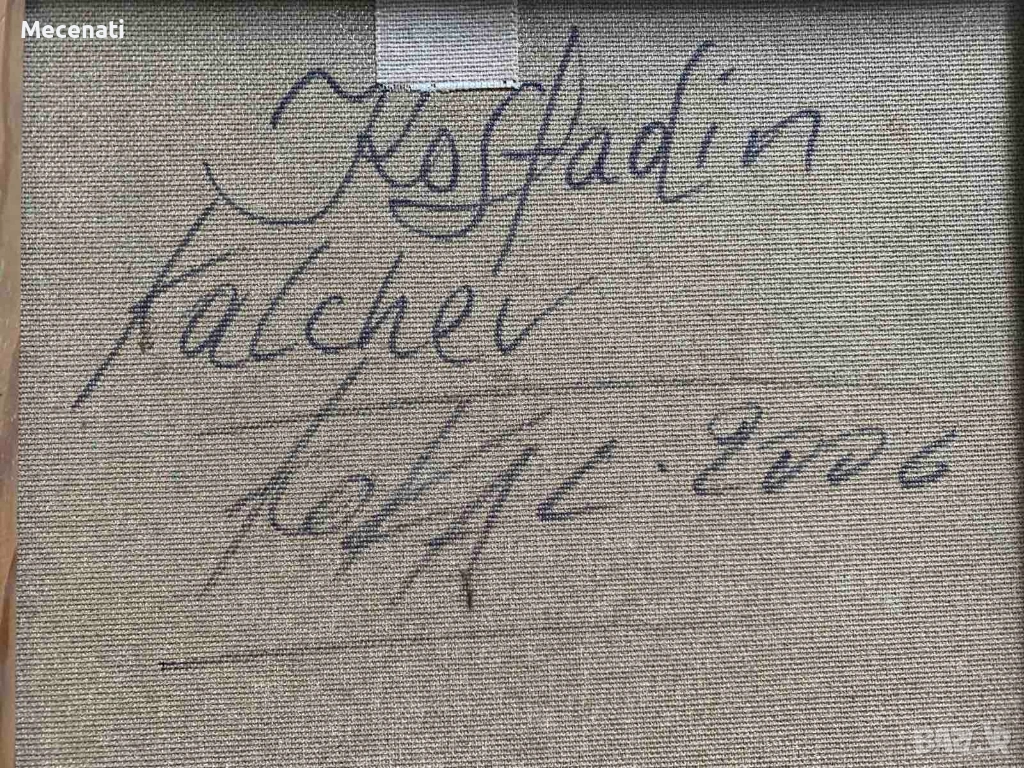 Mecenati
Kostadin
Kalchev
2006